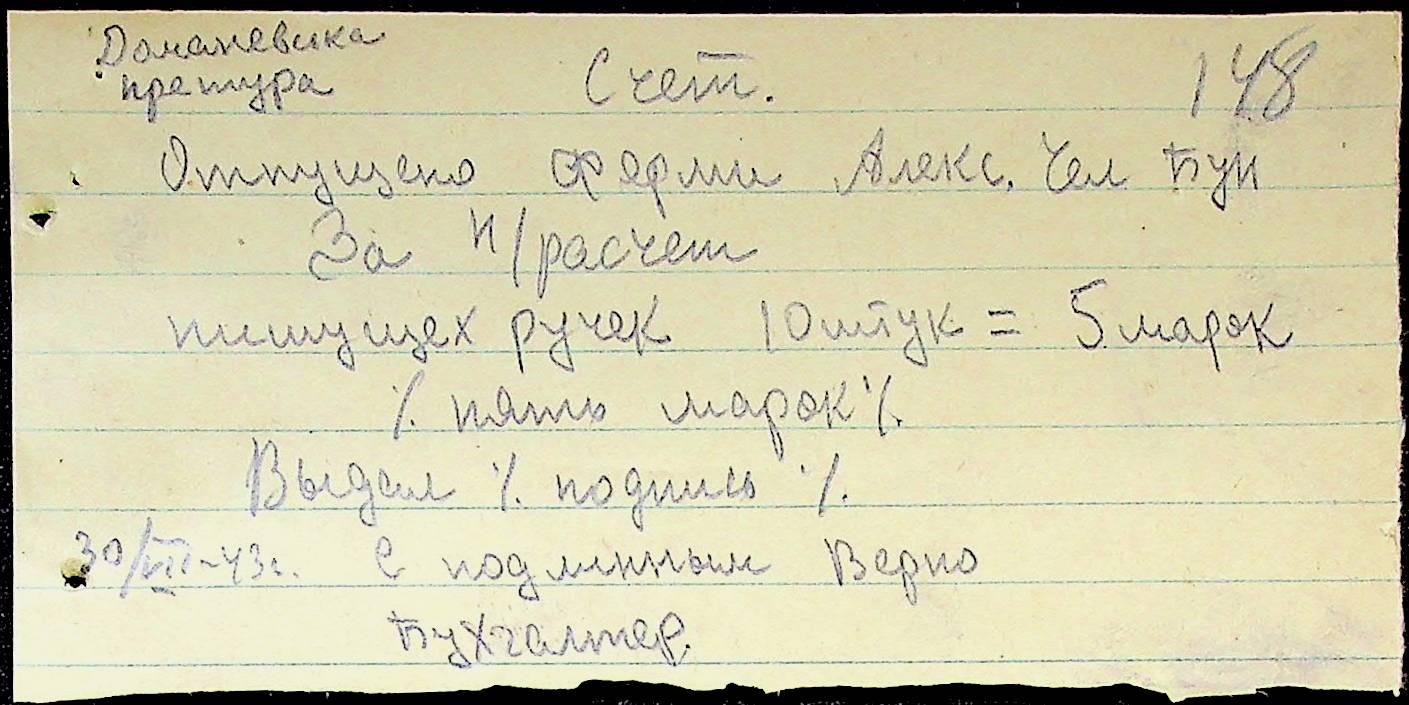 Доманевска
претура
Счет.
148
Отпущено Ферми Алекс. Чел Бун
За н/расчет
пишущех ручек 10 штук = 5 марок
٪ пять марок ٪.
Выдал ٪. подпись ٪.
30/VIII-43г. С подлинным Верно
Бухгалтер.